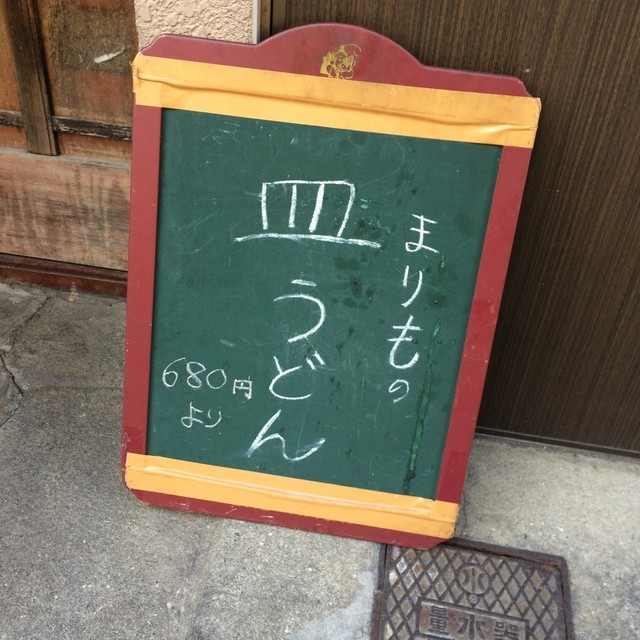 まりもの
皿うどん
680円
より
量水器